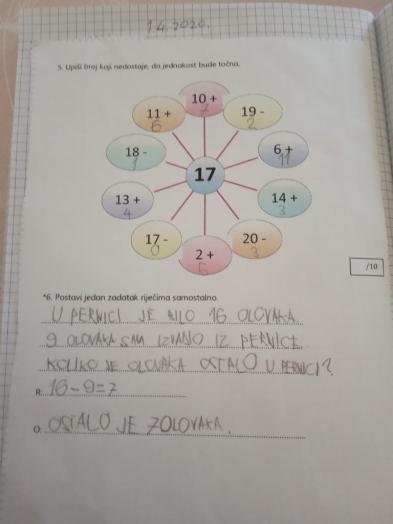 1.4.2020.
5. Upiši broj koji nedostaje, da jednakost bude točna.
10 + 7
19 - 2
6 + 11
14 + 3
20 - 3
2 + 5
17 - 0
13 + 4
18 - 1
11 + 6
17
/10
*6. Postavi jedan zadatak riječima samostalno.
U PERNICI JE BILO 16 OLOVAKA
9 OLOVAKA SAM IZVADIO IZ PERNICE
KOLIKO JE OLOVAKA OSTALO U PERNICI?
R: 16-9=7
O: OSTALO JE 7 OLOVAKA.